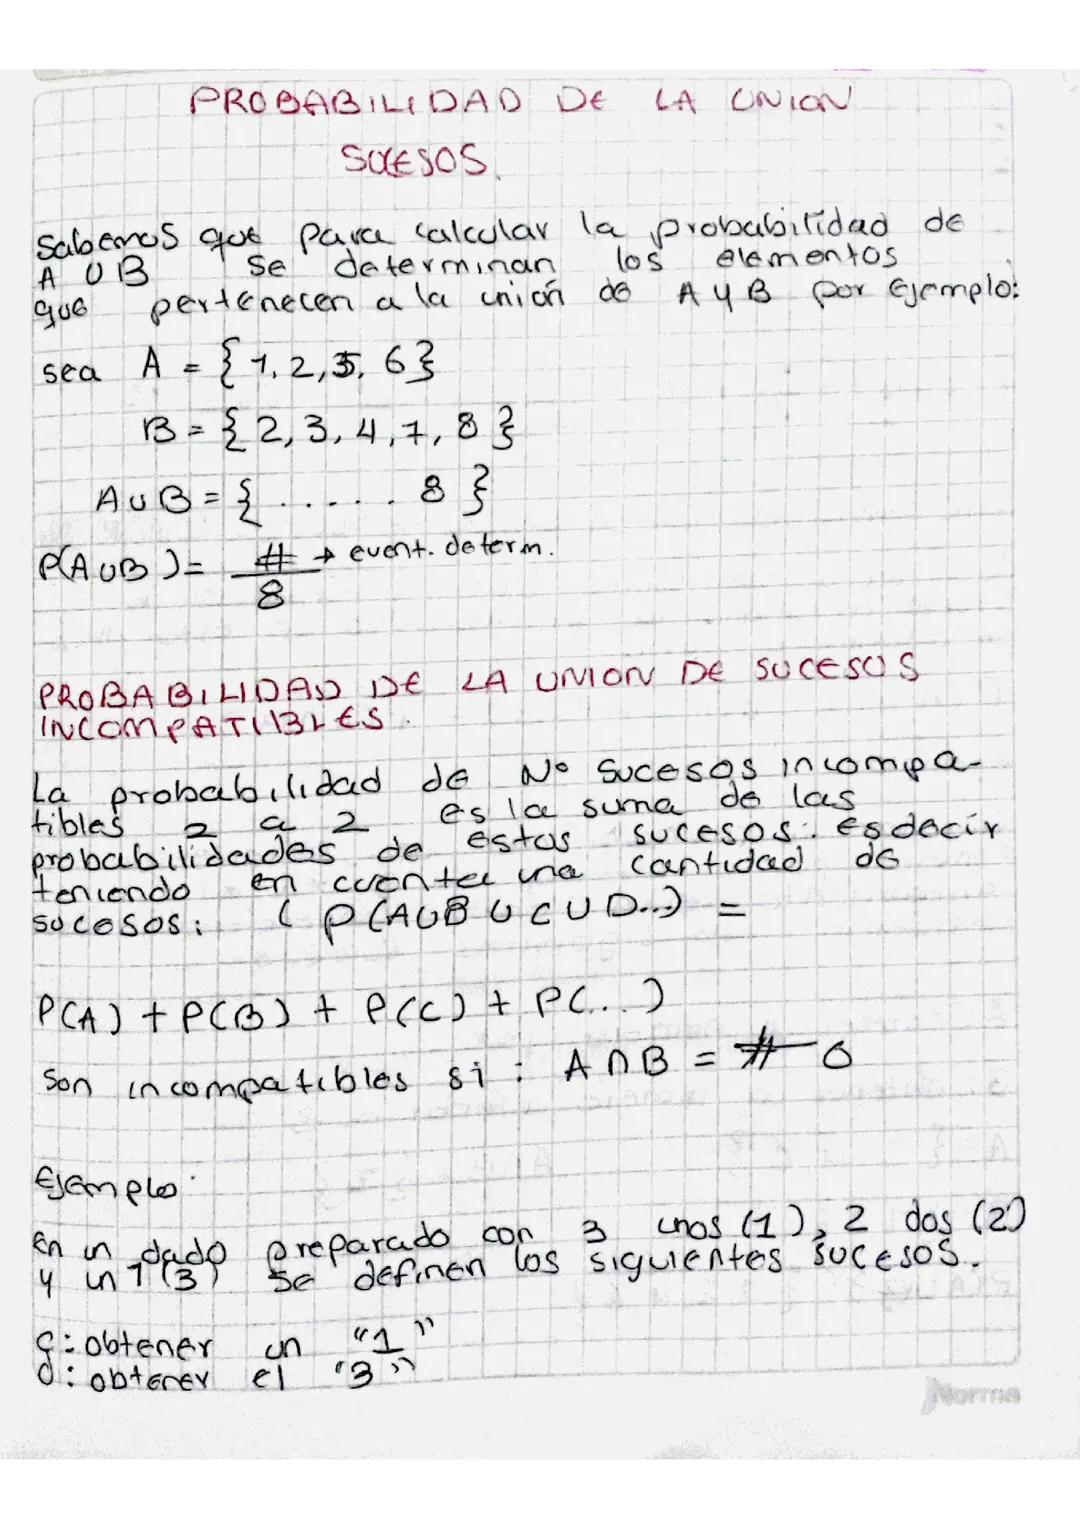 PROBABILIDAD DE LA UNION
SUCESOS.
Sabemos que para calcular la probabilidad de
A U B se determinan los elementos
que pertenecen a la unión de A y B por ejemplo:
sea A = { 1, 2, 5, 6}
B = { 2, 3, 4, 7, 8 }
A ∪ B = { ..... 8 }
P(A∪B) = # → event. determ.
8
PROBABILIDAD DE LA UNION DE SUCESOS
INCOMPATIBLES.
La probabilidad de Nº sucesos incompa-
tibles 2 a 2 es la suma de las
probabilidades de estos sucesos. es decir
teniendo en cuenta una cantidad de
sucesos: ( P(A∪B ∪ C ∪ D...) =
P(A) + P(B) + P(C) + P(...)
Son incompatibles si : A ∩ B = # 0
Ejemplo:
En un dado preparado con 3 unos (1), 2 dos (2)
y un 1 (3) se definen los siguientes sucesos.
C: obtener un "1"
d: obtener el "3"
Norma